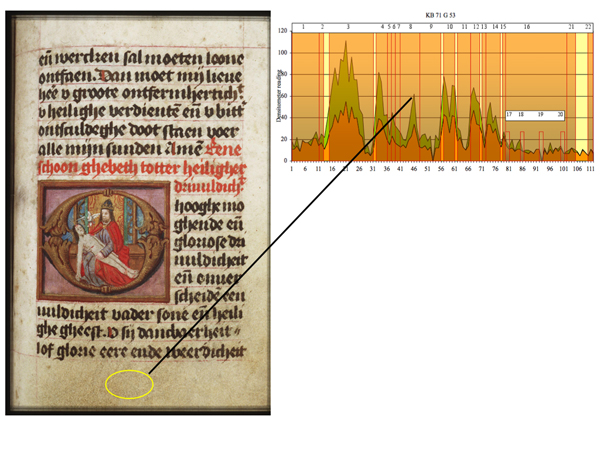 en̄ werchen sal moeten loone
ontfaen. Dan moet mij lieue
hee v groote ontfermhertich
v heilighe verdiente en̄ v bitt
ontfuldeghe doot staen voer
alle mijn sunden Amē Eene
schoon ghebeth totter heiligher
driuuldich
hooghe mo
ghende en̄
gloriose dri
uuldicheit
en̄ onuer
scheidē een
uuldicheit vader sone en̄ heili
ghe gheest. O sij dancbaerheit
lof glorie eere ende weerdicheit
KB 71 G 53
1 2 3 4 5 6 7 8 9 10 11 12 13 14 15 16 21 22
17 18 19 20
Densitometer reading
120
100
80
60
40
20
0
1 6 11 16 21 26 31 36 41 46 51 56 61 66 71 76 81 86 91 96 101 106 111